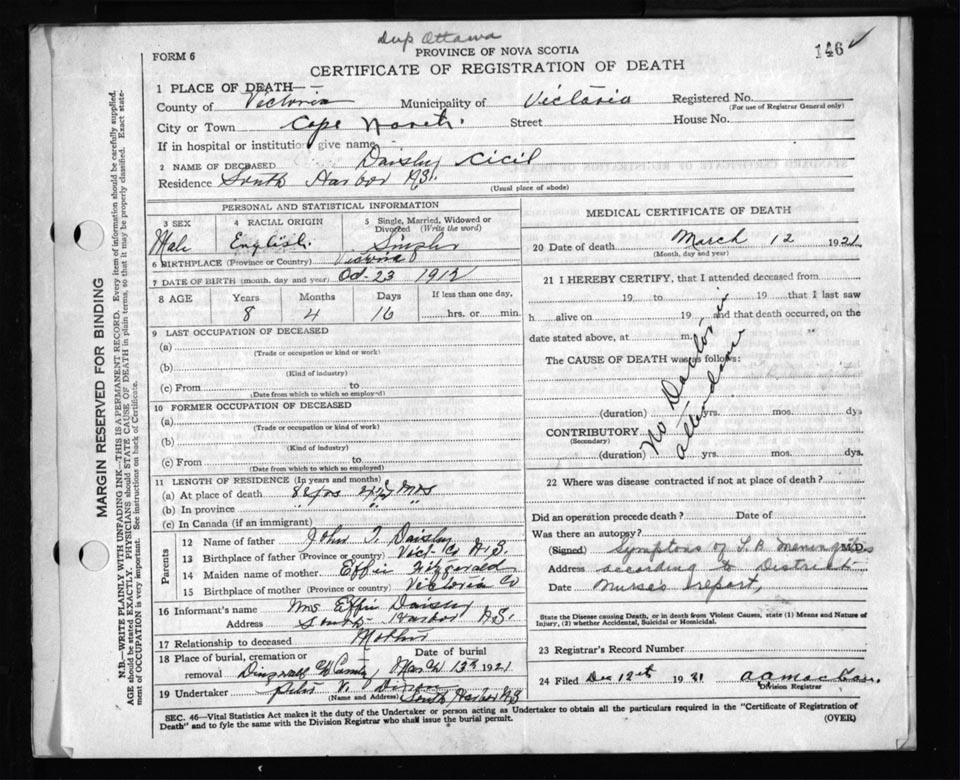 Dup Ottawa
FORM 6
PROVINCE OF NOVA SCOTIA
146
CERTIFICATE OF REGISTRATION OF DEATH
1 PLACE OF DEATH—
County of Victoria Municipality of Victoria Registered No.
(For use of Registrar General only)
City or Town Cape North. Street House No.
If in hospital or institution give name
2 NAME OF DECEASED Daisley Cicil
Residence South Harbor N.S.
(Usual place of abode)
PERSONAL AND STATISTICAL INFORMATION
3 SEX 4 RACIAL ORIGIN 5 Single, Married, Widowed or Divorced (Write the word)
Male English. Single
6 BIRTHPLACE (Province or Country) Victoria
7 DATE OF BIRTH (month, day and year) Oct-23 1912
8 AGE Years Months Days If less than one day,
8 4 16 hrs. or min.
9 LAST OCCUPATION OF DECEASED
(a)
(Trade or occupation or kind or work)
(b)
(Kind of industry)
(c) From to
(Date from which to which so employed)
10 FORMER OCCUPATION OF DECEASED
(a)
(Trade or occupation or kind of work)
(b)
(Kind of industry)
(c) From to
(Date from which to which so employed)
11 LENGTH OF RESIDENCE (In years and months)
(a) At place of death 8 yrs Mos
(b) In province " " " "
(c) In Canada (if an immigrant)
Parents
12 Name of father John T. Daisley
13 Birthplace of father (Province or country) Vict- Co N.S.
14 Maiden name of mother Effie Fitzgerald
15 Birthplace of mother (Province or country) Victoria Co
16 Informant's name Mrs Effie Daisley
Address South Harbor N.S.
17 Relationship to deceased Mother
18 Place of burial, cremation or removal Dingwall Date of burial March 13th 1921
19 Undertaker (Name and Address) South Harbor N.S
MEDICAL CERTIFICATE OF DEATH
20 Date of death March 12 1921
(Month, day and year)
21 I HEREBY CERTIFY, that I attended deceased from
19 to 19 that I last saw
h alive on 19 , and that death occurred, on the
date stated above, at m.
The CAUSE OF DEATH was as follows:
No Doctor in
attendance
(duration) yrs. mos. dys
CONTRIBUTORY
(Secondary)
(duration) yrs. mos. dys.
22 Where was disease contracted if not at place of death?
Did an operation precede death? Date of
Was there an autopsy?
(Signed) Symptons of T.B. meningitis M.D.
Address according to District
Date Nurse's report,
State the Disease causing Death, or in death from Violent Causes, state (1) Means and Nature of Injury, (2) whether Accidental, Suicidal or Homicidal.
23 Registrar's Record Number
24 Filed Dec 12th 1931
Division Registrar
SEC. 46—Vital Statistics Act makes it the duty of the Undertaker or person acting as Undertaker to obtain all the particulars required in the "Certificate of Registration of
Death" and to fyle the same with the Division Registrar who shall issue the burial permit. (OVER)
MARGIN RESERVED FOR BINDING
N.B.—WRITE PLAINLY WITH UNFADING INK—THIS IS A PERMANENT RECORD. Every item of information should be carefully supplied.
AGE should be stated EXACTLY. PHYSICIANS should STATE CAUSE OF DEATH in plain terms, so that it may be properly classified. Exact state-
ment of OCCUPATION is very important. See instructions on back of Certificate.